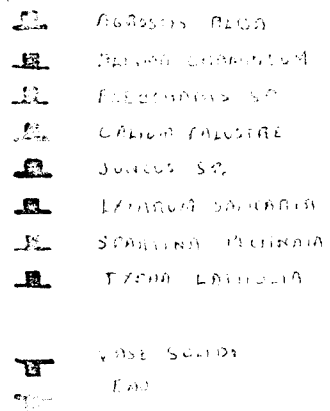 AGROSTIS ALBA
ELEOCHARIS SP.
GALIUM PALUSTRE
JUNCUS SP.
LYTHRUM SALICARIA
SPARTINA PECTINATA
TYPHA LATIFOLIA
VASE SOLIDE
EAU